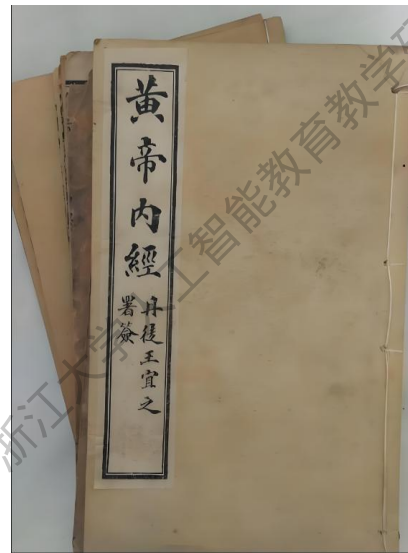 黄帝内經
丹徒王宜之
署簽
浙江大学人工智能教育教学研